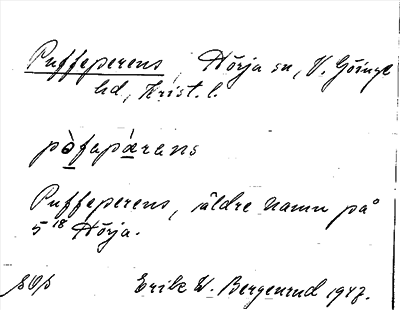 Puffeperens, Hörja sn, V. Göinge
hd, Krist. l.
pòfapǽrens
Puffeperens, äldre namn på
5¹⁸ Hörja.
Erik W. Bergenrud 1947.